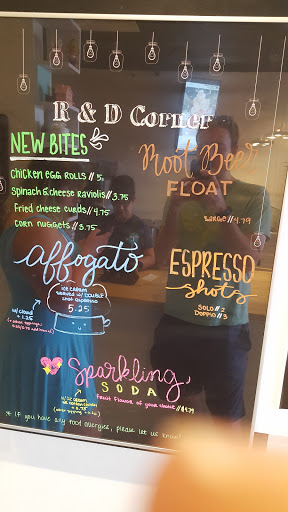 R & D Corner
NEW BITES
Chicken egg rolls // 5
Spinach & cheese raviolis // 3.75
Fried cheese curds // 4.75
Corn nuggets // 3.75
Root Beer
FLOAT
Large // 4.79
affogato
ice cream
served w/ double
shot espresso
5.25
w/ cloud
+ 1.25
ESPRESSO
shots
Solo // 2
Doppio // 3
Sparkling
SODA
Fruit flavor of your choice // $1.79
w/ ice cream
* if you have any food allergies, please let us know!